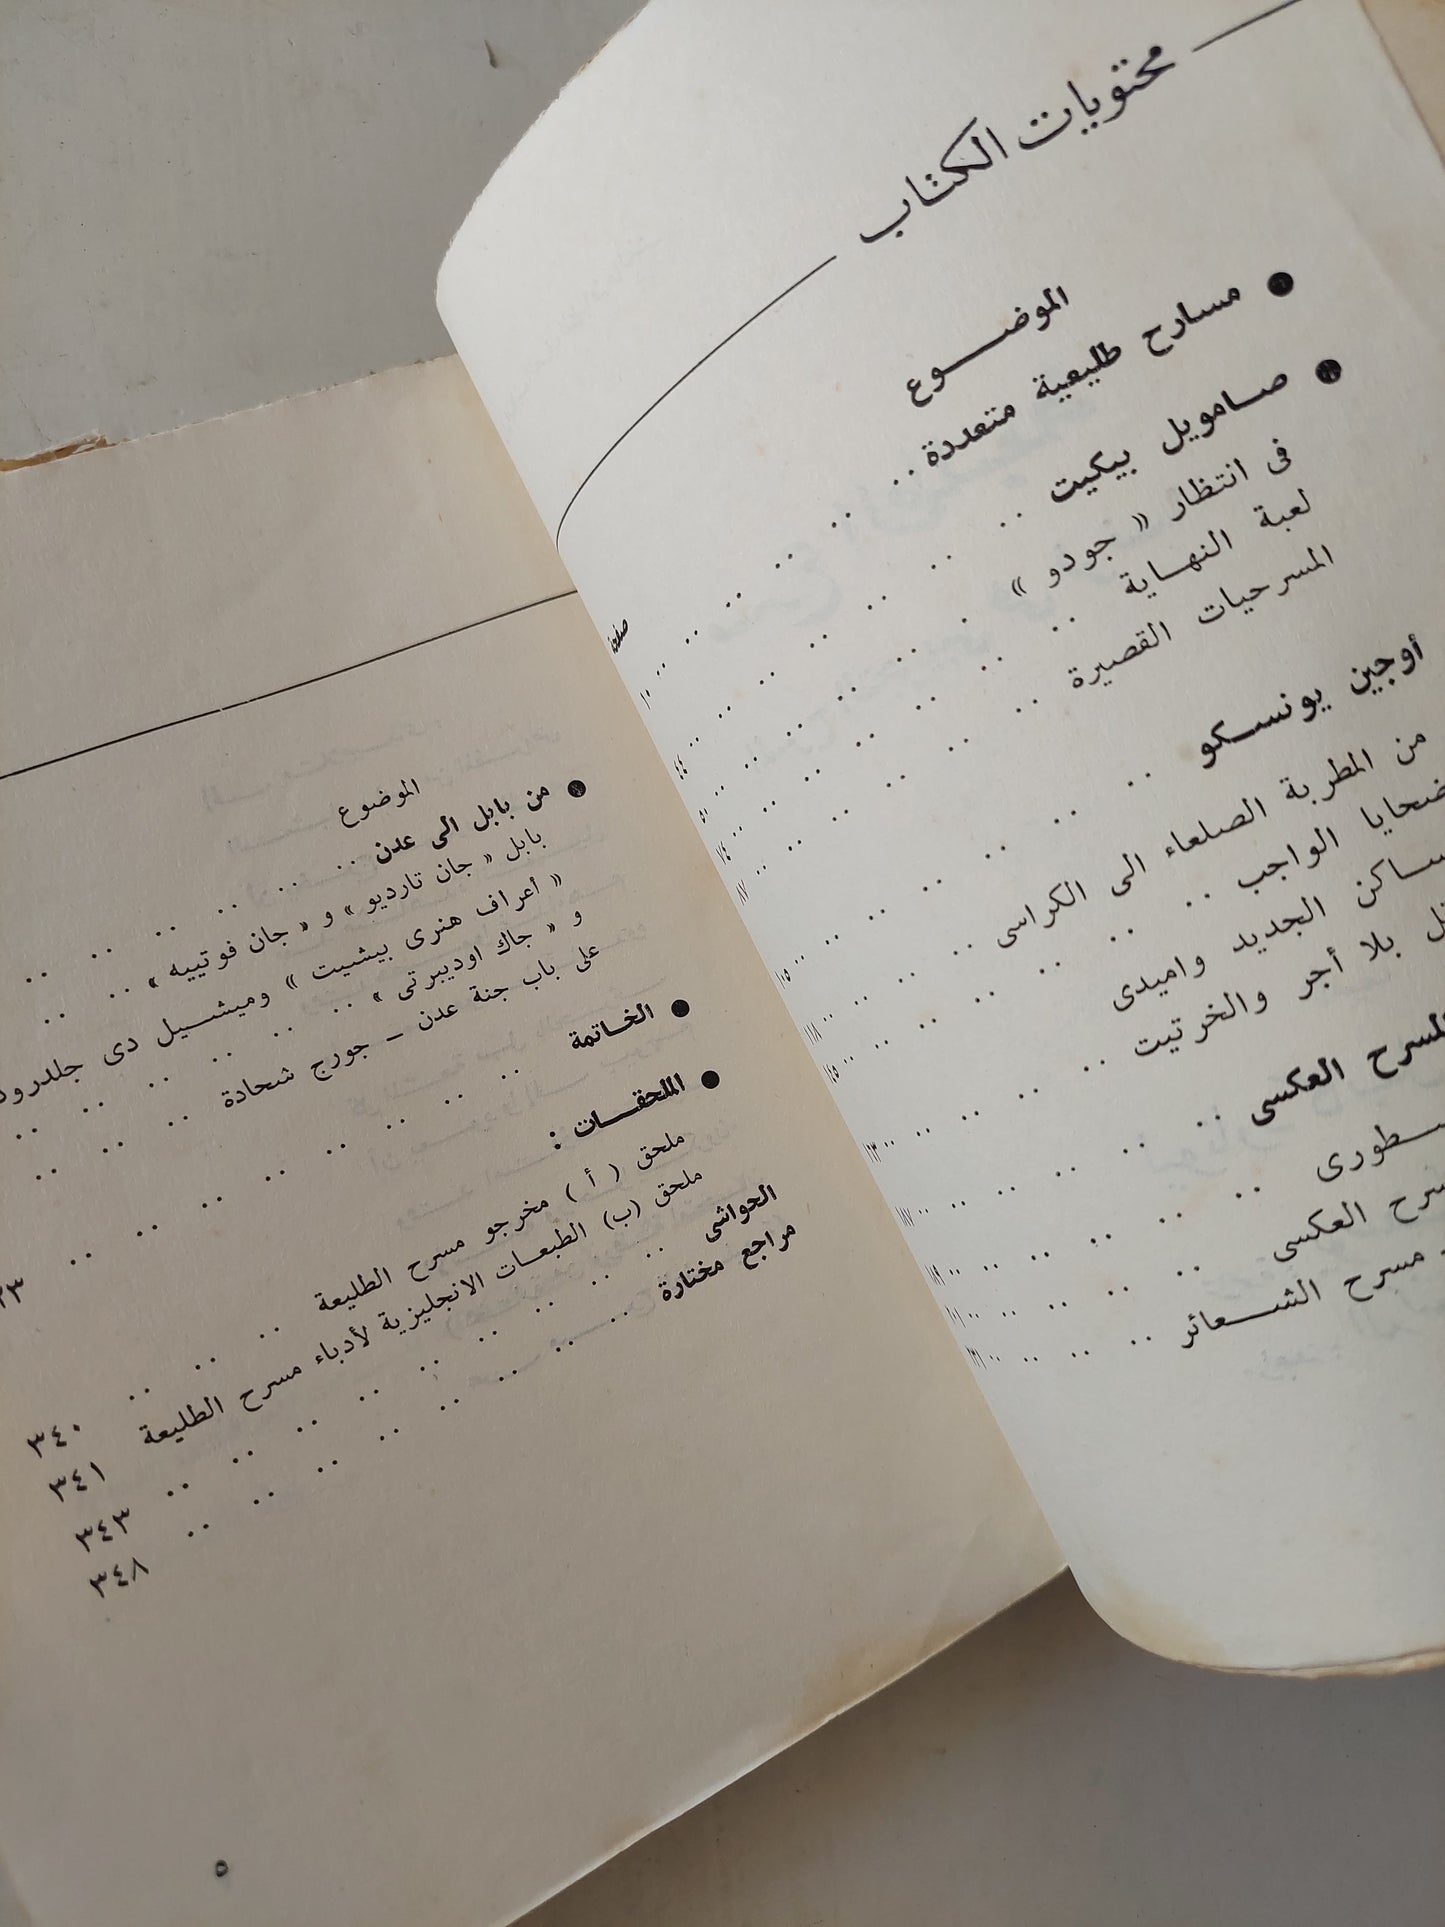 محتويات الكتاب
الموضوع
صفحة
مسارح طليعية متعددة .. .. .. .. .. .. .. ١٠
صامويل بيكيت .. .. .. .. .. .. ٤٤
فى انتظار « جودو » .. .. .. .. ٥٠
لعبة النهاية .. .. .. .. .. .. ٧٤
المسرحيات القصيرة .. .. .. .. .. ٨٧
أوجين يونسكو .. .. .. .. .. .. ١٠٥
من المطربة الصلعاء الى الكراسى .. .. .. ١١٨
ضحايا الواجب .. .. .. .. .. ١٤٥
الجديد واميدى
بلا أجر والخرتيت .. .. .. .. ١٦٣
المسرح العكسى .. .. .. .. .. ١٨٧
.. .. .. .. .. ١٨٩
العكسى .. .. .. ..
مسرح الشعائر .. .. .. ..
الموضوع
من بابل الى عدن .. .. .. .. .. ..
بابل « جان تارديو » و « جان فوتييه » .. ..
« أعراف هنرى بيشيت » وميشيل دى جلدرود
و « جاك اوديبرتى » .. .. .. .. .. ..
على باب جنة عدن – جورج شحادة .. .. ..
الخاتمة .. .. .. .. .. .. ..
الملحقات :
ملحق ( أ ) مخرجو مسرح الطليعة .. .. .. ٣٤٠
ملحق (ب) الطبعات الانجليزية لأدباء مسرح الطليعة ٣٤١
الحواشى .. .. .. .. .. .. .. .. ٣٤٣
مراجع مختارة .. .. .. .. .. .. .. ٣٤٨
٥